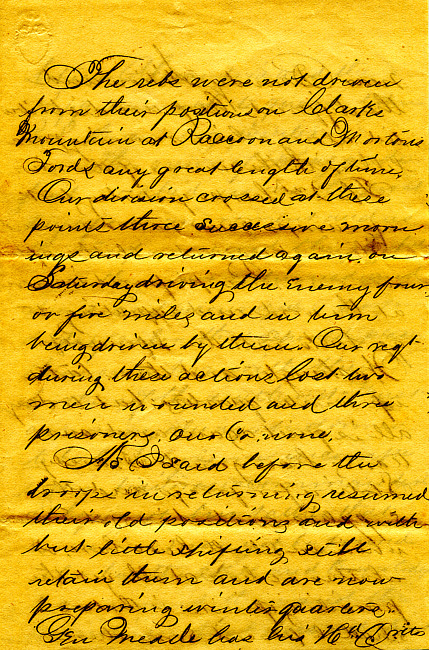 The rebs were not driven
from their positions on Clarks
Mountain at Raccoon and Mortons
Fords any great length of time.
Our division crossed at these
points three successive morn
ings and returned again. on
Saturday driving the enemy four
or five miles and in turn
being driven by them. Our regt
during these actions lost two
men wounded and three
prisoners, our Co. none.
As I said before the
troops in returning resumed
their old positions and with
but little shifting still
retain them and are now
preparing winter quarters.
Gen Meade has his Hd Qrters